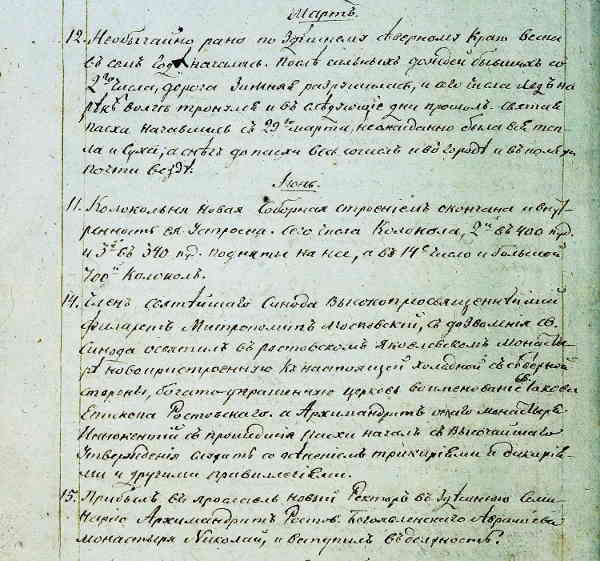 Мартъ.
12. Необычайно рано по здѣшнему сѣверному краю весна
въ семъ году началась. Послѣ сильныхъ дождей бывшихъ со
2го числа, дорога зимняя разрушилась, и сего числа ледъ на
рѣкѣ Волгѣ тронулся и въ слѣдующіе дни прошолъ. Святая
пасха начавшись съ 29го марта, неожиданно была вся теп-
ла и суха; а снѣгъ до пасхи весь согнелъ и въ городѣ и въ поляхъ
почти вездѣ.
Іюнь.
11. Колокольня новая Соборная строеніемъ окончана и внут-
ренность ея устроена. Сего числа Колокола, 2й въ 400 пуд.
и 3й въ 340 пуд. подняты на нее, а въ 14е число и большой
700й Колоколъ.
14. Членъ Святѣйшаго Синода Высокопреосвященнѣйшій
Филаретъ Митрополитъ Московскій, съ дозволенія Св.
Синода освятилъ въ Ростовскомъ Яковлевскомъ Монасты-
рѣ новопристроенную къ настоящей холодной съ сѣверной
стороны, богато украшенную церковь во именованіе Св. Іакова
Епископа Ростовскаго. а Архимандритъ онаго монастыря
Иннокентій съ прошедшія пасхи началъ съ Высочайшаго
Утвержденія служить со осѣненіемъ трикиріями и дикирія-
ми и другими привиллегіями.
15. Прибылъ въ Ярославль новый Ректоръ въ здѣшнюю Семи-
нарію Архимандритъ Ростов. Богоявленскаго Авраміева
монастыря Николай, и вступилъ въ должность.